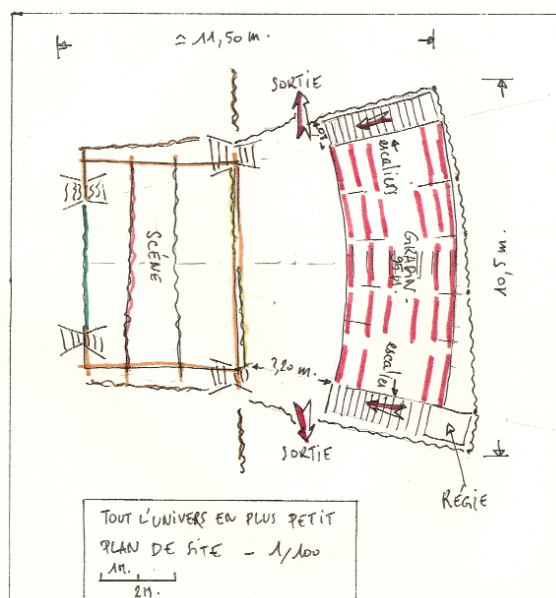 ≃ 11,50 m.
SORTIE
escaliers
SCÈNE
GRADIN -
10,5 m.
escalier
SORTIE
RÉGIE
TOUT L'UNIVERS EN PLUS PETIT
PLAN DE SITE - 1/100
1M.
2M.